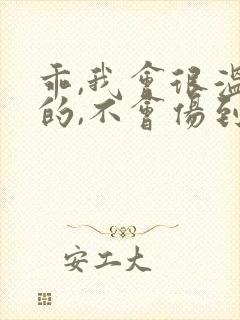 乖,我會很溫
的,不會傷到
安工大